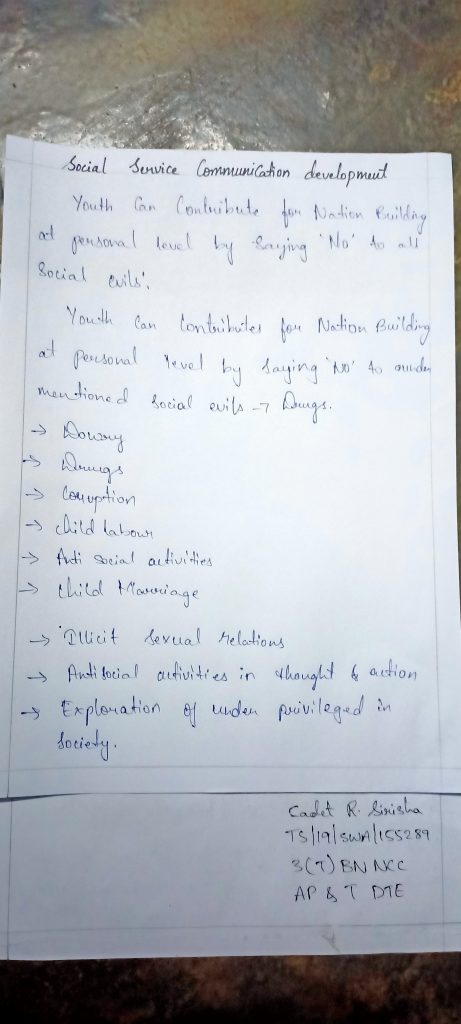 Social Service Communication development
Youth Can Contribute for Nation Building
at personal level by Saying 'No' to all
Social evils'.
Youth Can Contributes for Nation Building
at personal level by saying 'No' to under
mentioned social evils → Drugs.
→ Dowry
→ Drugs
→ Corruption
→ child labour
→ Anti social activities
→ Child Marriage
→ Illicit sexual relations
→ Antisocial activities in thought & action
→ Exploration of under privileged in
Society.
Cadet R. Sirisha
TS/19/SWA/155289
3(T) BN NCC
AP & T DTE